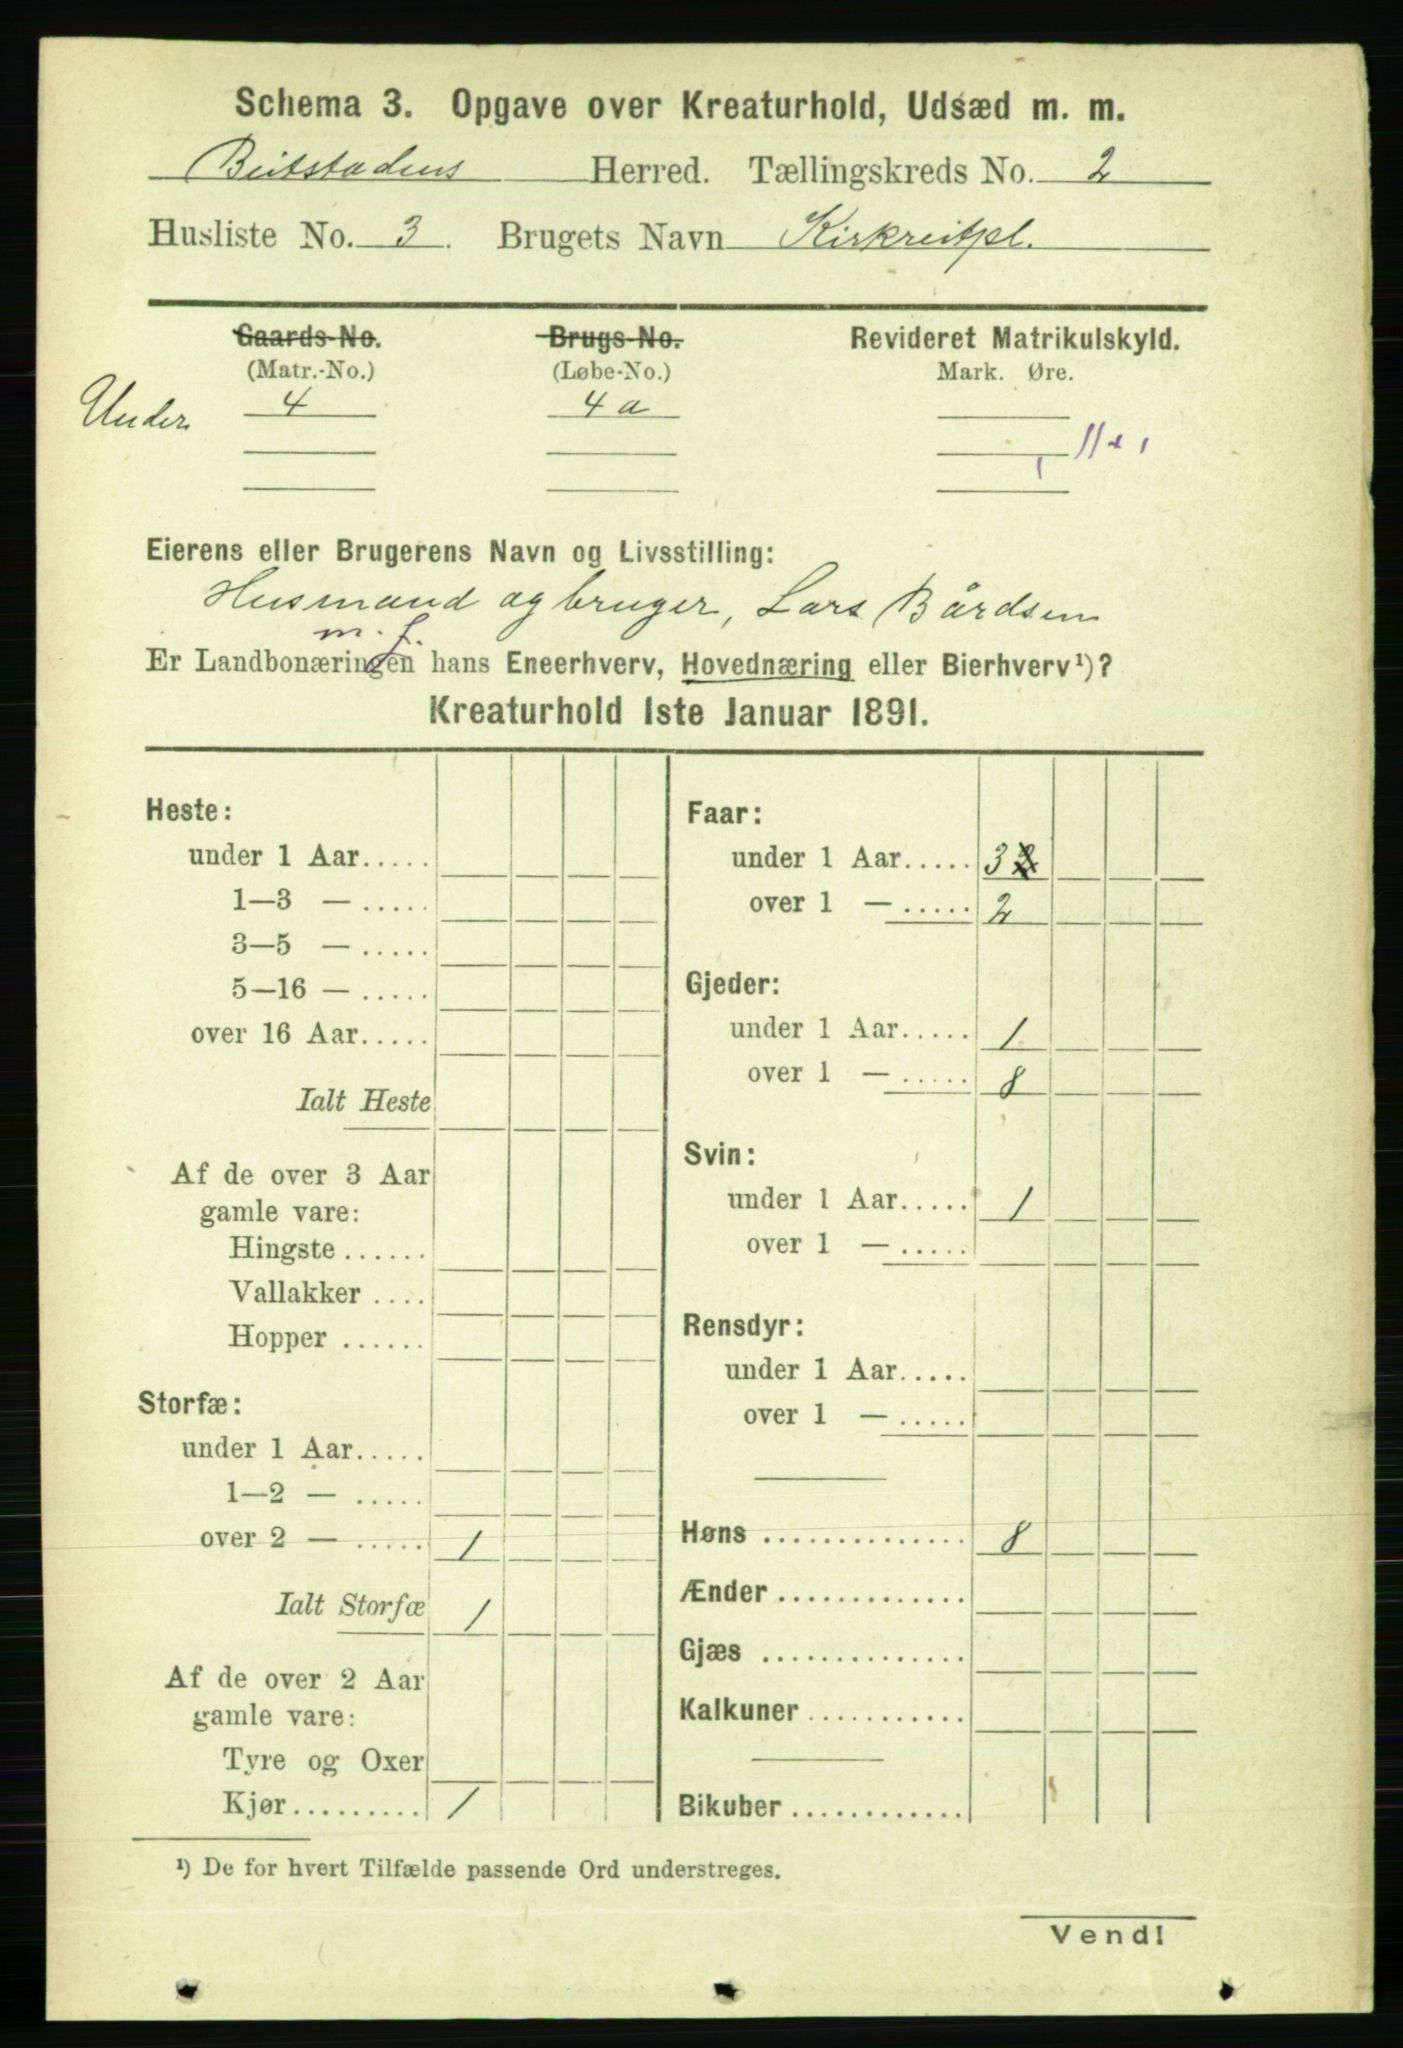 Schema 3. Opgave over Kreaturhold, Udsæd m. m.
Beitstadens Herred. Tællingskreds No. 2
Husliste No. 3. Brugets Navn Kirkreitpl.
Gaards-No. Brugs-No. Revideret Matrikulskyld.
(Matr.-No.) (Løbe-No.) Mark. Øre.
Under 4 4 a
Eierens eller Brugerens Navn og Livsstilling:
Husmand og bruger, Lars Bårdsen
m. f.
Er Landbonæringen hans Eneerhverv, Hovednæring eller Bierhverv¹)?
Kreaturhold 1ste Januar 1891.
Heste:
under 1 Aar.....
1—3 — .....
3—5 — .....
5—16 — .....
over 16 Aar.....
Ialt Heste
Af de over 3 Aar
gamle vare:
Hingste ......
Vallakker ....
Hopper ......
Storfæ:
under 1 Aar.....
1—2 — .....
over 2 — ..... 1
Ialt Storfæ 1
Af de over 2 Aar
gamle vare:
Tyre og Oxer
Kjør......... 1
Faar:
under 1 Aar..... 3
over 1 — ..... 2
Gjeder:
under 1 Aar..... 1
over 1 — ..... 8
Svin:
under 1 Aar..... 1
over 1 — .....
Rensdyr:
under 1 Aar.....
over 1 — .....
Høns .............. 8
Ænder .............
Gjæs ..............
Kalkuner ...........
Bikuber .............
¹) De for hvert Tilfælde passende Ord understreges.
Vend!